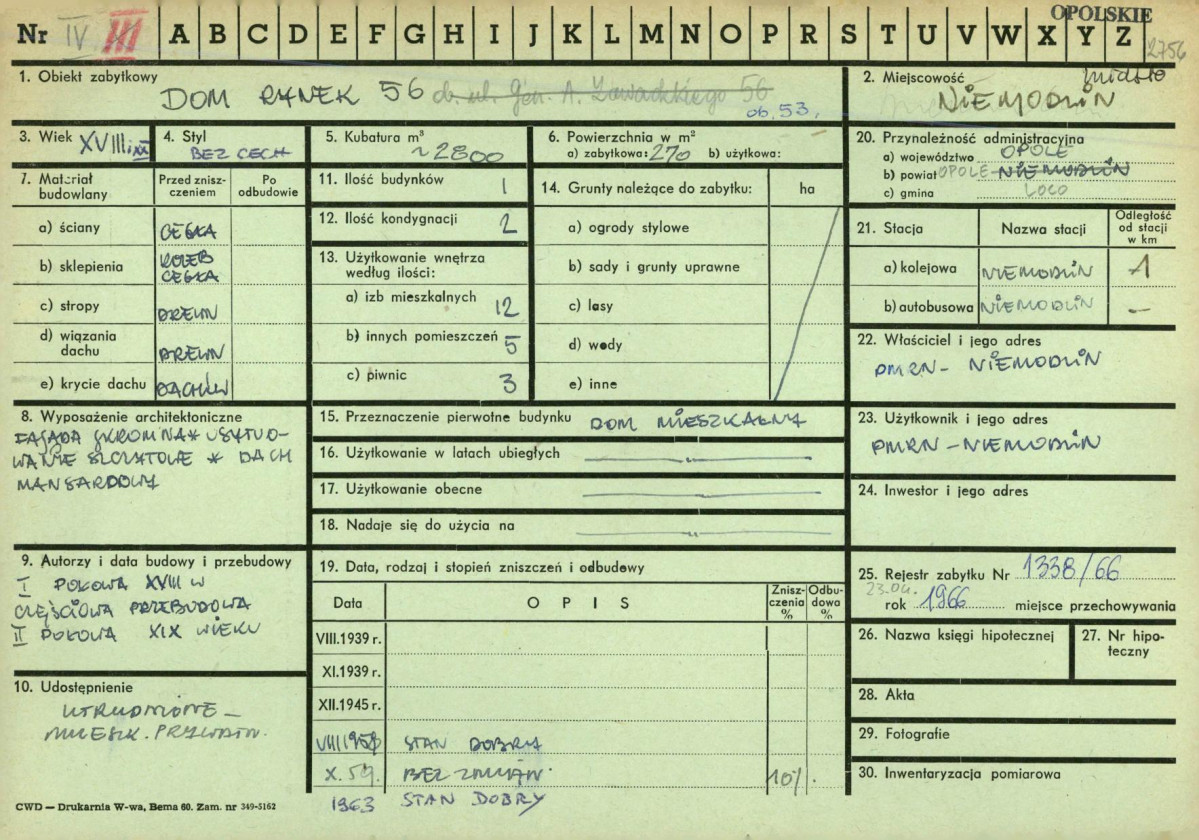 OPOLSKIE
Nr IV III A B C D E F G H I J K L M N O P R S T U V W X Y Z
2756
1. Obiekt zabytkowy
DOM RYNEK 56 ob. ul. Gen. A. Zawadzkiego 56
ob. 53,
2. Miejscowość
miasto
NIEMODLIN
3. Wiek XVIII i XIX
4. Styl
BEZ CECH
5. Kubatura m³
~ 2800
6. Powierzchnia w m²
a) zabytkowa: 270 b) użytkowa:
20. Przynależność administracyjna
a) województwo OPOLE
b) powiat OPOLE NIEMODLIN
c) gmina LOCO
7. Materiał budowlany
Przed zniszczeniem
Po odbudowie
a) ściany CEGŁA
b) sklepienia KOLEB CEGŁA
c) stropy DREWN
d) wiązania dachu DREWN
e) krycie dachu DACHÓW
11. Ilość budynków 1
12. Ilość kondygnacji 2
13. Użytkowanie wnętrza według ilości:
a) izb mieszkalnych 12
b) innych pomieszczeń 5
c) piwnic 3
14. Grunty należące do zabytku: ha
a) ogrody stylowe
b) sady i grunty uprawne
c) lasy
d) wody
e) inne
21. Stacja
Nazwa stacji
Odległość od stacji w km
a) kolejowa NIEMODLIN 1
b) autobusowa NIEMODLIN —
22. Właściciel i jego adres
PMRN - NIEMODLIN
8. Wyposażenie architektoniczne
FASADA SKROMNA * USYTUO-
WANIE SZCZYTOWE * DACH
MANSARDOWY
15. Przeznaczenie pierwotne budynku DOM MIESZKALNY
16. Użytkowanie w latach ubiegłych —„—
17. Użytkowanie obecne —„—
18. Nadaje się do użycia na —„—
23. Użytkownik i jego adres
PMRN - NIEMODLIN
24. Inwestor i jego adres
9. Autorzy i data budowy i przebudowy
I POŁOWA XVIII W
CZĘŚCIOWA PRZEBUDOWA
II POŁOWA XIX WIEKU
10. Udostępnienie
UTRUDNIONE -
MIESZK. PRYWATN.
19. Data, rodzaj i stopień zniszczeń i odbudowy
Data
O P I S
Zniszczenia %
Odbudowa %
VIII.1939 r.
XI.1939 r.
XII.1945 r.
VIII 1958 STAN DOBRY
X. 59. BEZ ZMIAN. 10%.
1963 STAN DOBRY
25. Rejestr zabytku Nr 1338/66
23.04.
rok 1966 miejsce przechowywania
26. Nazwa księgi hipotecznej
27. Nr hipo-
teczny
28. Akta
29. Fotografie
30. Inwentaryzacja pomiarowa
CWD — Drukarnia W-wa, Bema 60. Zam. nr 349-5162